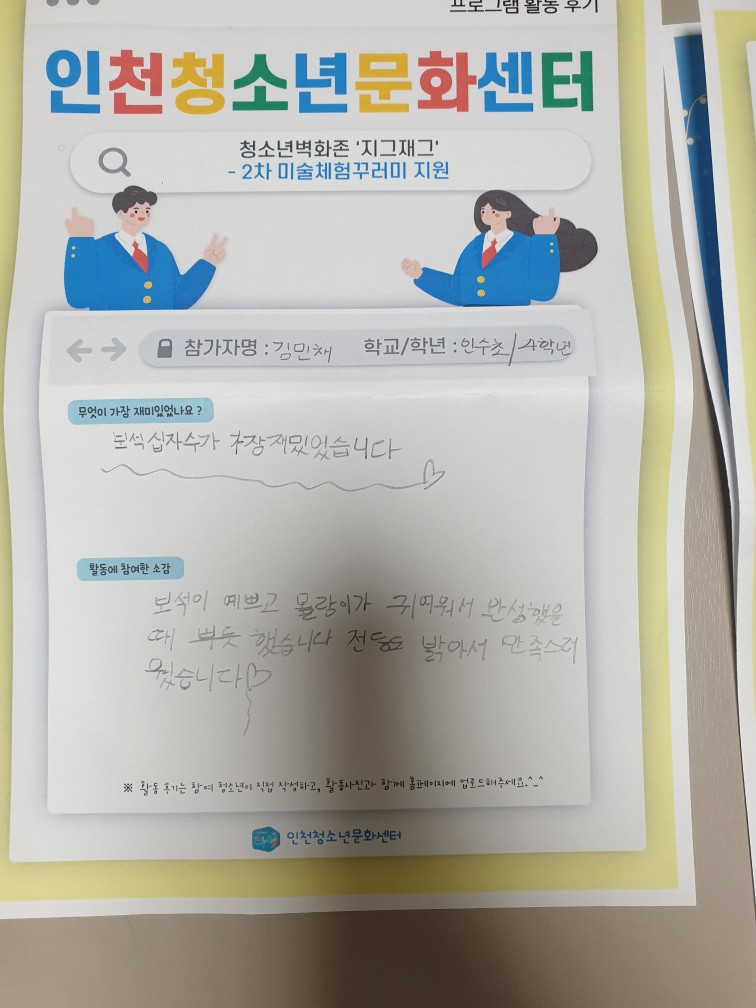 프로그램 활동 후기
인천청소년문화센터
청소년벽화존 '지그재그'
- 2차 미술체험꾸러미 지원
참가자명 : 김민채 학교/학년 : 인수초/4학년
무엇이 가장 재미있었나요 ?
보석십자수가 가장재밌었습니다
활동에 참여한 소감
보석이 예쁘고 몰랑이가 귀여워서 완성했을
때 뿌듯 했습니다 전등도 밝아서 만족스러
웠습니다
※ 활동 후기는 참여 청소년이 직접 작성하고, 활동사진과 함께 홈페이지에 업로드해주세요.^_^
인천청소년문화센터